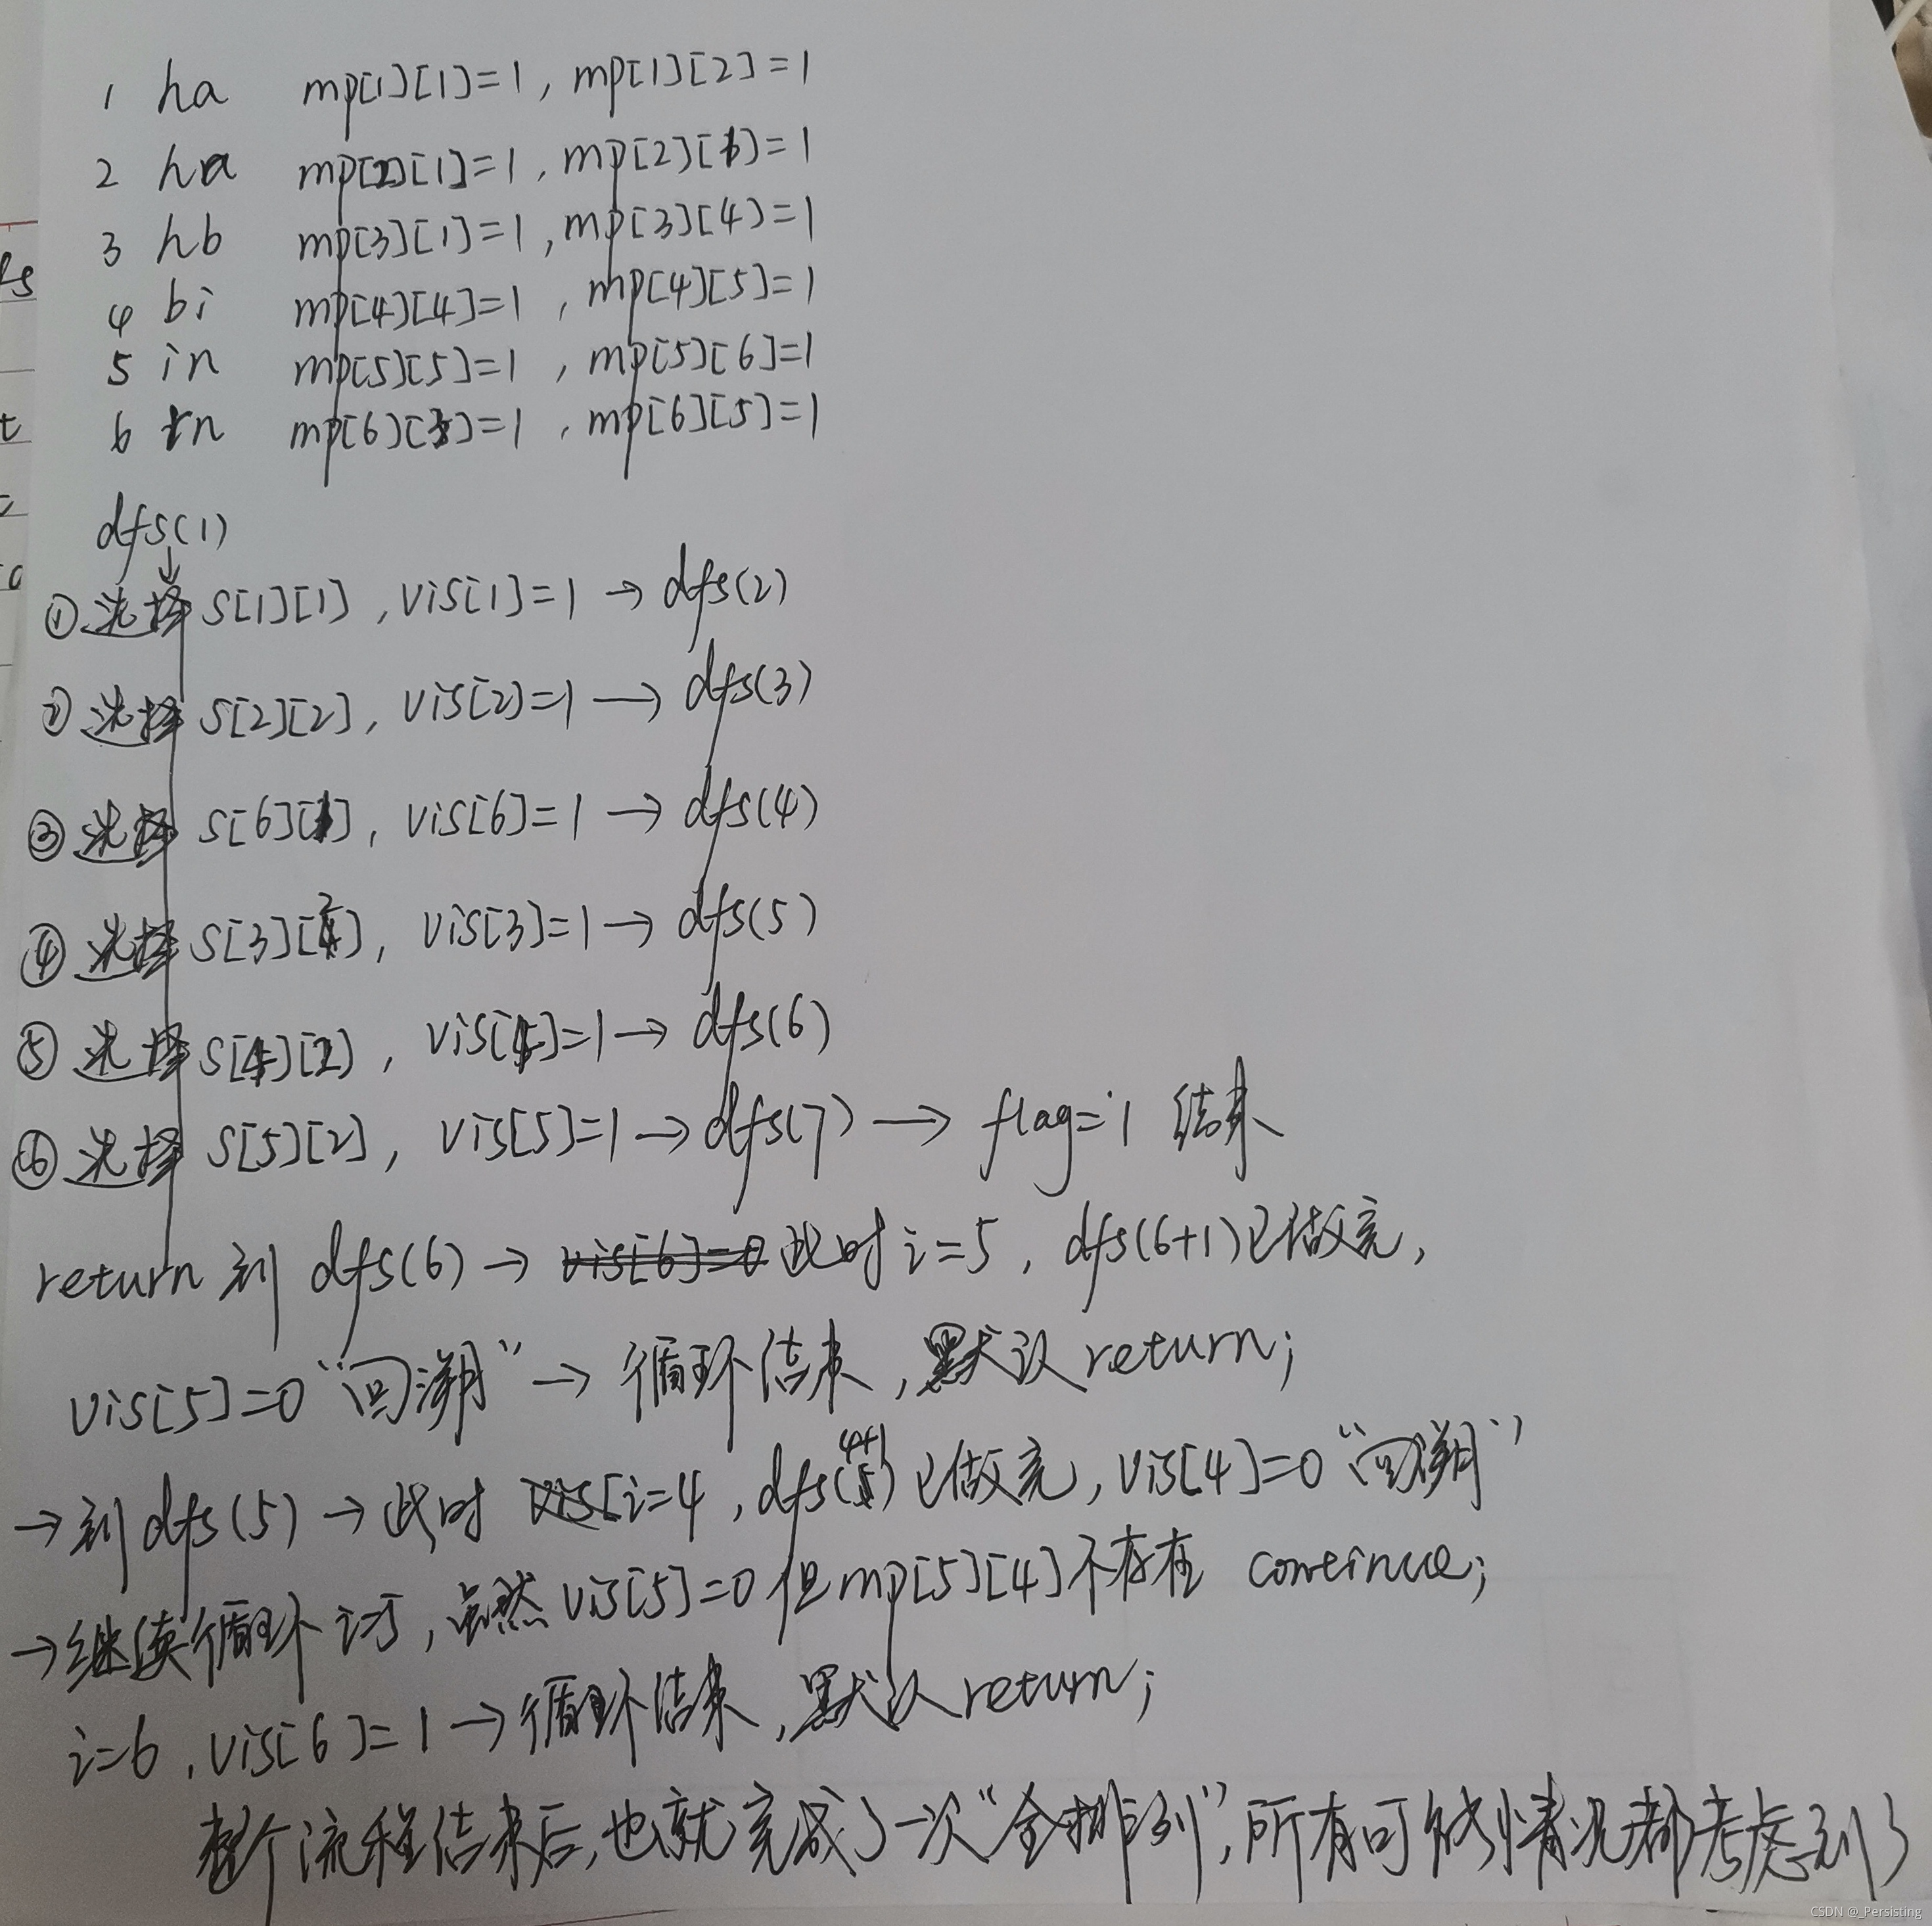 1 ha mp[1][1]=1, mp[1][2]=1
2 ha mp[2][1]=1, mp[2][1]=1
3 hb mp[3][1]=1, mp[3][4]=1
4 bi mp[4][4]=1, mp[4][5]=1
5 in mp[5][5]=1, mp[5][6]=1
6 rn mp[6][3]=1, mp[6][5]=1
dfs(1)
↓
①选择 s[1][1], vis[1]=1 → dfs(2)
②选择 s[2][2], vis[2]=1 → dfs(3)
③选择 s[6][1], vis[6]=1 → dfs(4)
④选择 s[3][2], vis[3]=1 → dfs(5)
⑤选择 s[4][2], vis[4]=1 → dfs(6)
⑥选择 s[5][2], vis[5]=1 → dfs(7) → flag=1 结束
return 到 dfs(6) → 此时 i=5, dfs(6+1)已做完,
vis[5]=0 “回溯” → 循环结束, 默认 return;
→到 dfs(5) → 此时 i=4, dfs() 已做完, vis[4]=0 “回溯”
→继续循环 i=5, 虽然 vis[5]=0 但 mp[5][4]不存在 continue;
i=6, vis[6]=1 → 循环结束, 默认 return;
整个流程结束后, 也就完成了一次“全排列”, 所有可能情况都考虑到了
CSDN @_Persisting